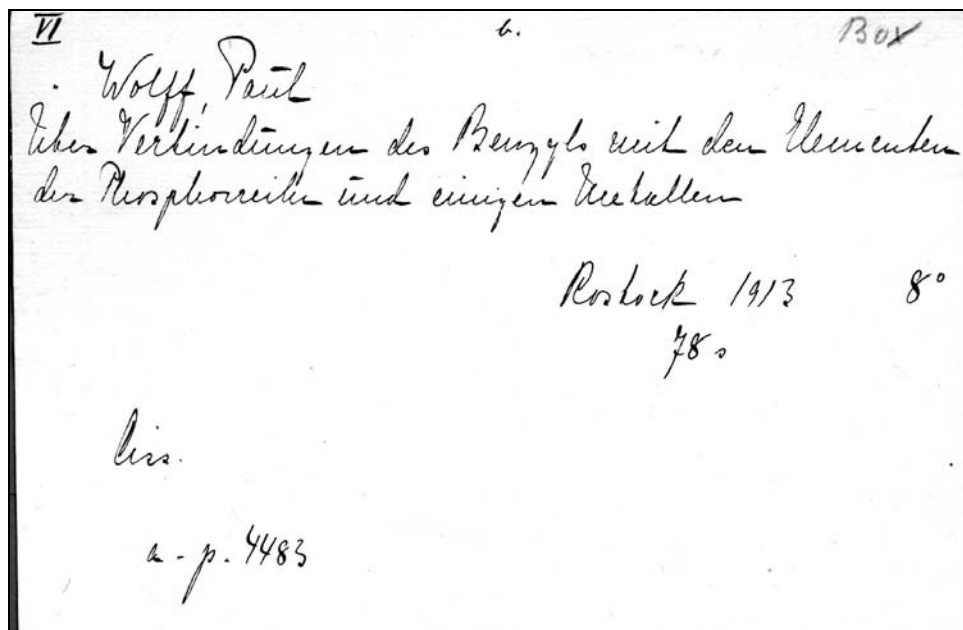 VI b. Box
Wolff, Paul
Über Verbindungen des Benzyls mit den Elementen
der Phosphorreihe und einigen Metallen
Rostock 1913 8°
78 s
Diss.
a - p. 4483